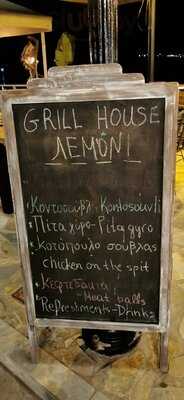 GRILL HOUSE
ΛΕΜΟΝΙ
• Κοντοσούβλι - Kontosouvli
• Πιτα γύρο - Pita gyro
• Κοτόπουλο σούβλας
chicken on the spit
• Κεφτεδάκια
- Meat balls
• Refreshments - Drinks